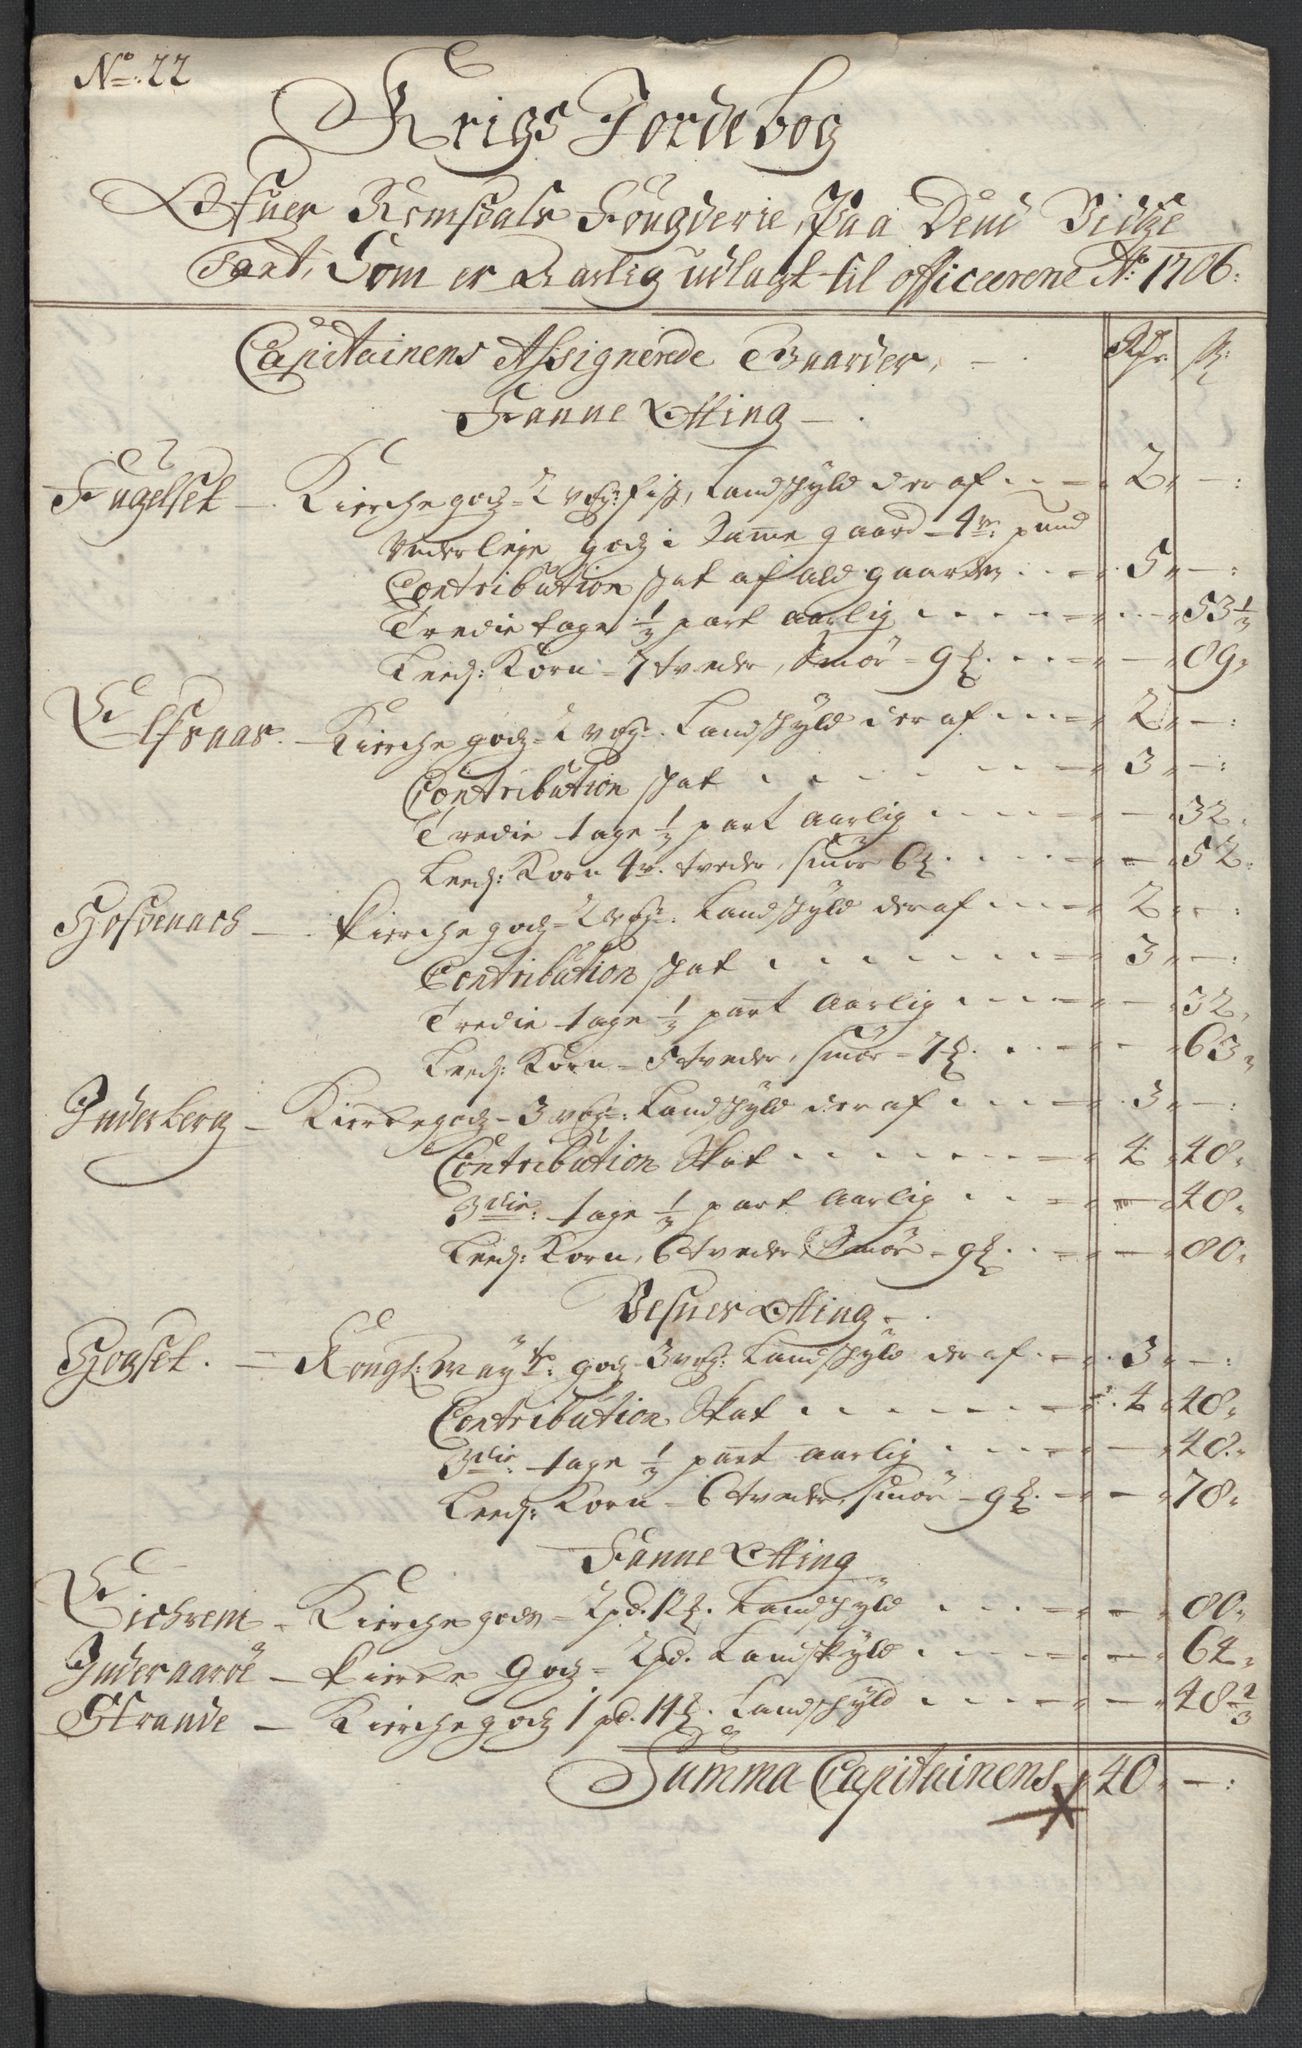 No: 22
Krigs Jordebog
Ofuer Romsdals Fougderie, Paa Dend Vidge
Part, Som er Aarlig udlagt til officererne Ao: 1706:
Capitainens Assignerede Gaarder, Rdr ß:
Fanne Otting
Fugelset — Kirche godz 2 vog: fisk, Landschyld deraf 2 —
Underleje godz i Samme gaard 4 pund
Contribution skat af ald gaarden 5 —
Tredie tage 1/3 part aarlig — 53 1/3
Leed: Korn 7 tveder, Smør 9 — 89
Elfsaas — Kirche godz 2 vog: Landschyld deraf 2 —
Contribution skat 3 —
Tredie tage 1/3 part aarlig — 32
Leed: Korn 4 tveder, smør 6 — 52
— Kirche godz 2 vog: Landschyld deraf 2 —
Contribution skat 3 —
Tredie tage 1/3 part aarlig — 32
Leed: Korn 5 tveder, smør 7 — 63
Inderberg — Kirke godz 3 vog: Landschyld deraf 3 —
Contribution Skat 4 48
3die: tage 1/3 part aarlig — 48
Leed: Korn, 6 tveder, Smør 9 — 80
Vesnes Otting
Hogset — Kongl: Mayts: godz 3 vog: Landschyld deraf 3 —
Contribution Skat 4 48
3die: tage 1/3 part aarlig — 48
Leed: Korn 6 tveder, smør 9 — 78
Fanne Otting
Eichrem — Kirche godz 2 pd. 12 Landschyld — 80
Inderaarøe — Kirke Godz 2 pd. Landskyld — 64
Strande — Kirche godz 1 pd. 14 Landschyld — 48 2/3
Summa Capitainens 40 —